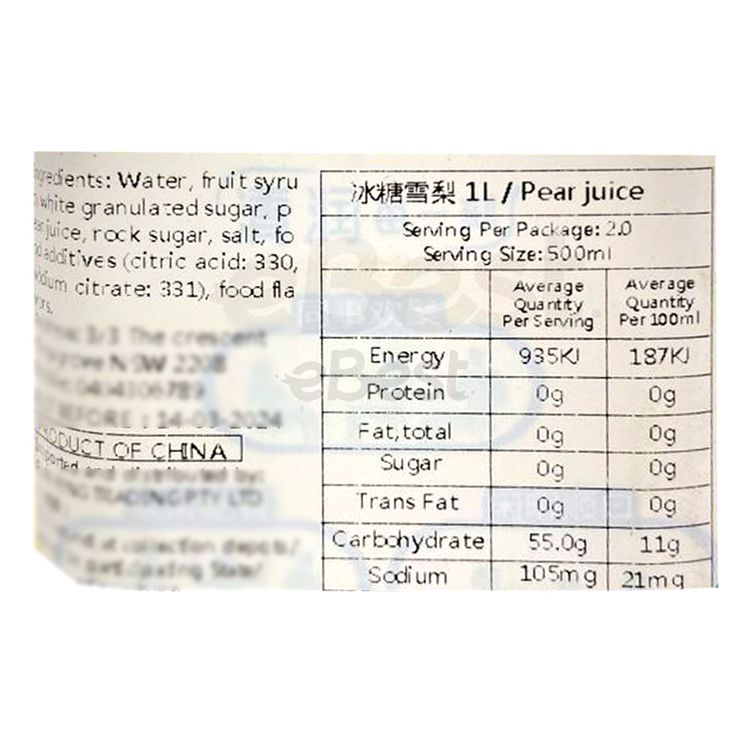 ngredients: Water, fruit syru
white granulated sugar, p
ear juice, rock sugar, salt, fo
od additives (citric acid: 330,
citrate: 331), food fla
vors.
3/3 The crescent
NSW 2208
BEFORE : 14-03-2024
PRODUCT OF CHINA
Imported and distributed by:
TRADING PTY LTD
at collection depots/
participating State/
冰糖雪梨 1L / Pear juice
Serving Per Package: 2.0
Serving Size: 500ml
Average Quantity Per Serving
Average Quantity Per 100ml
Energy 935KJ 187KJ
Protein 0g 0g
Fat,total 0g 0g
Sugar 0g 0g
Trans Fat 0g 0g
Carbohydrate 55.0g 11g
Sodium 105mg 21mg
eBest